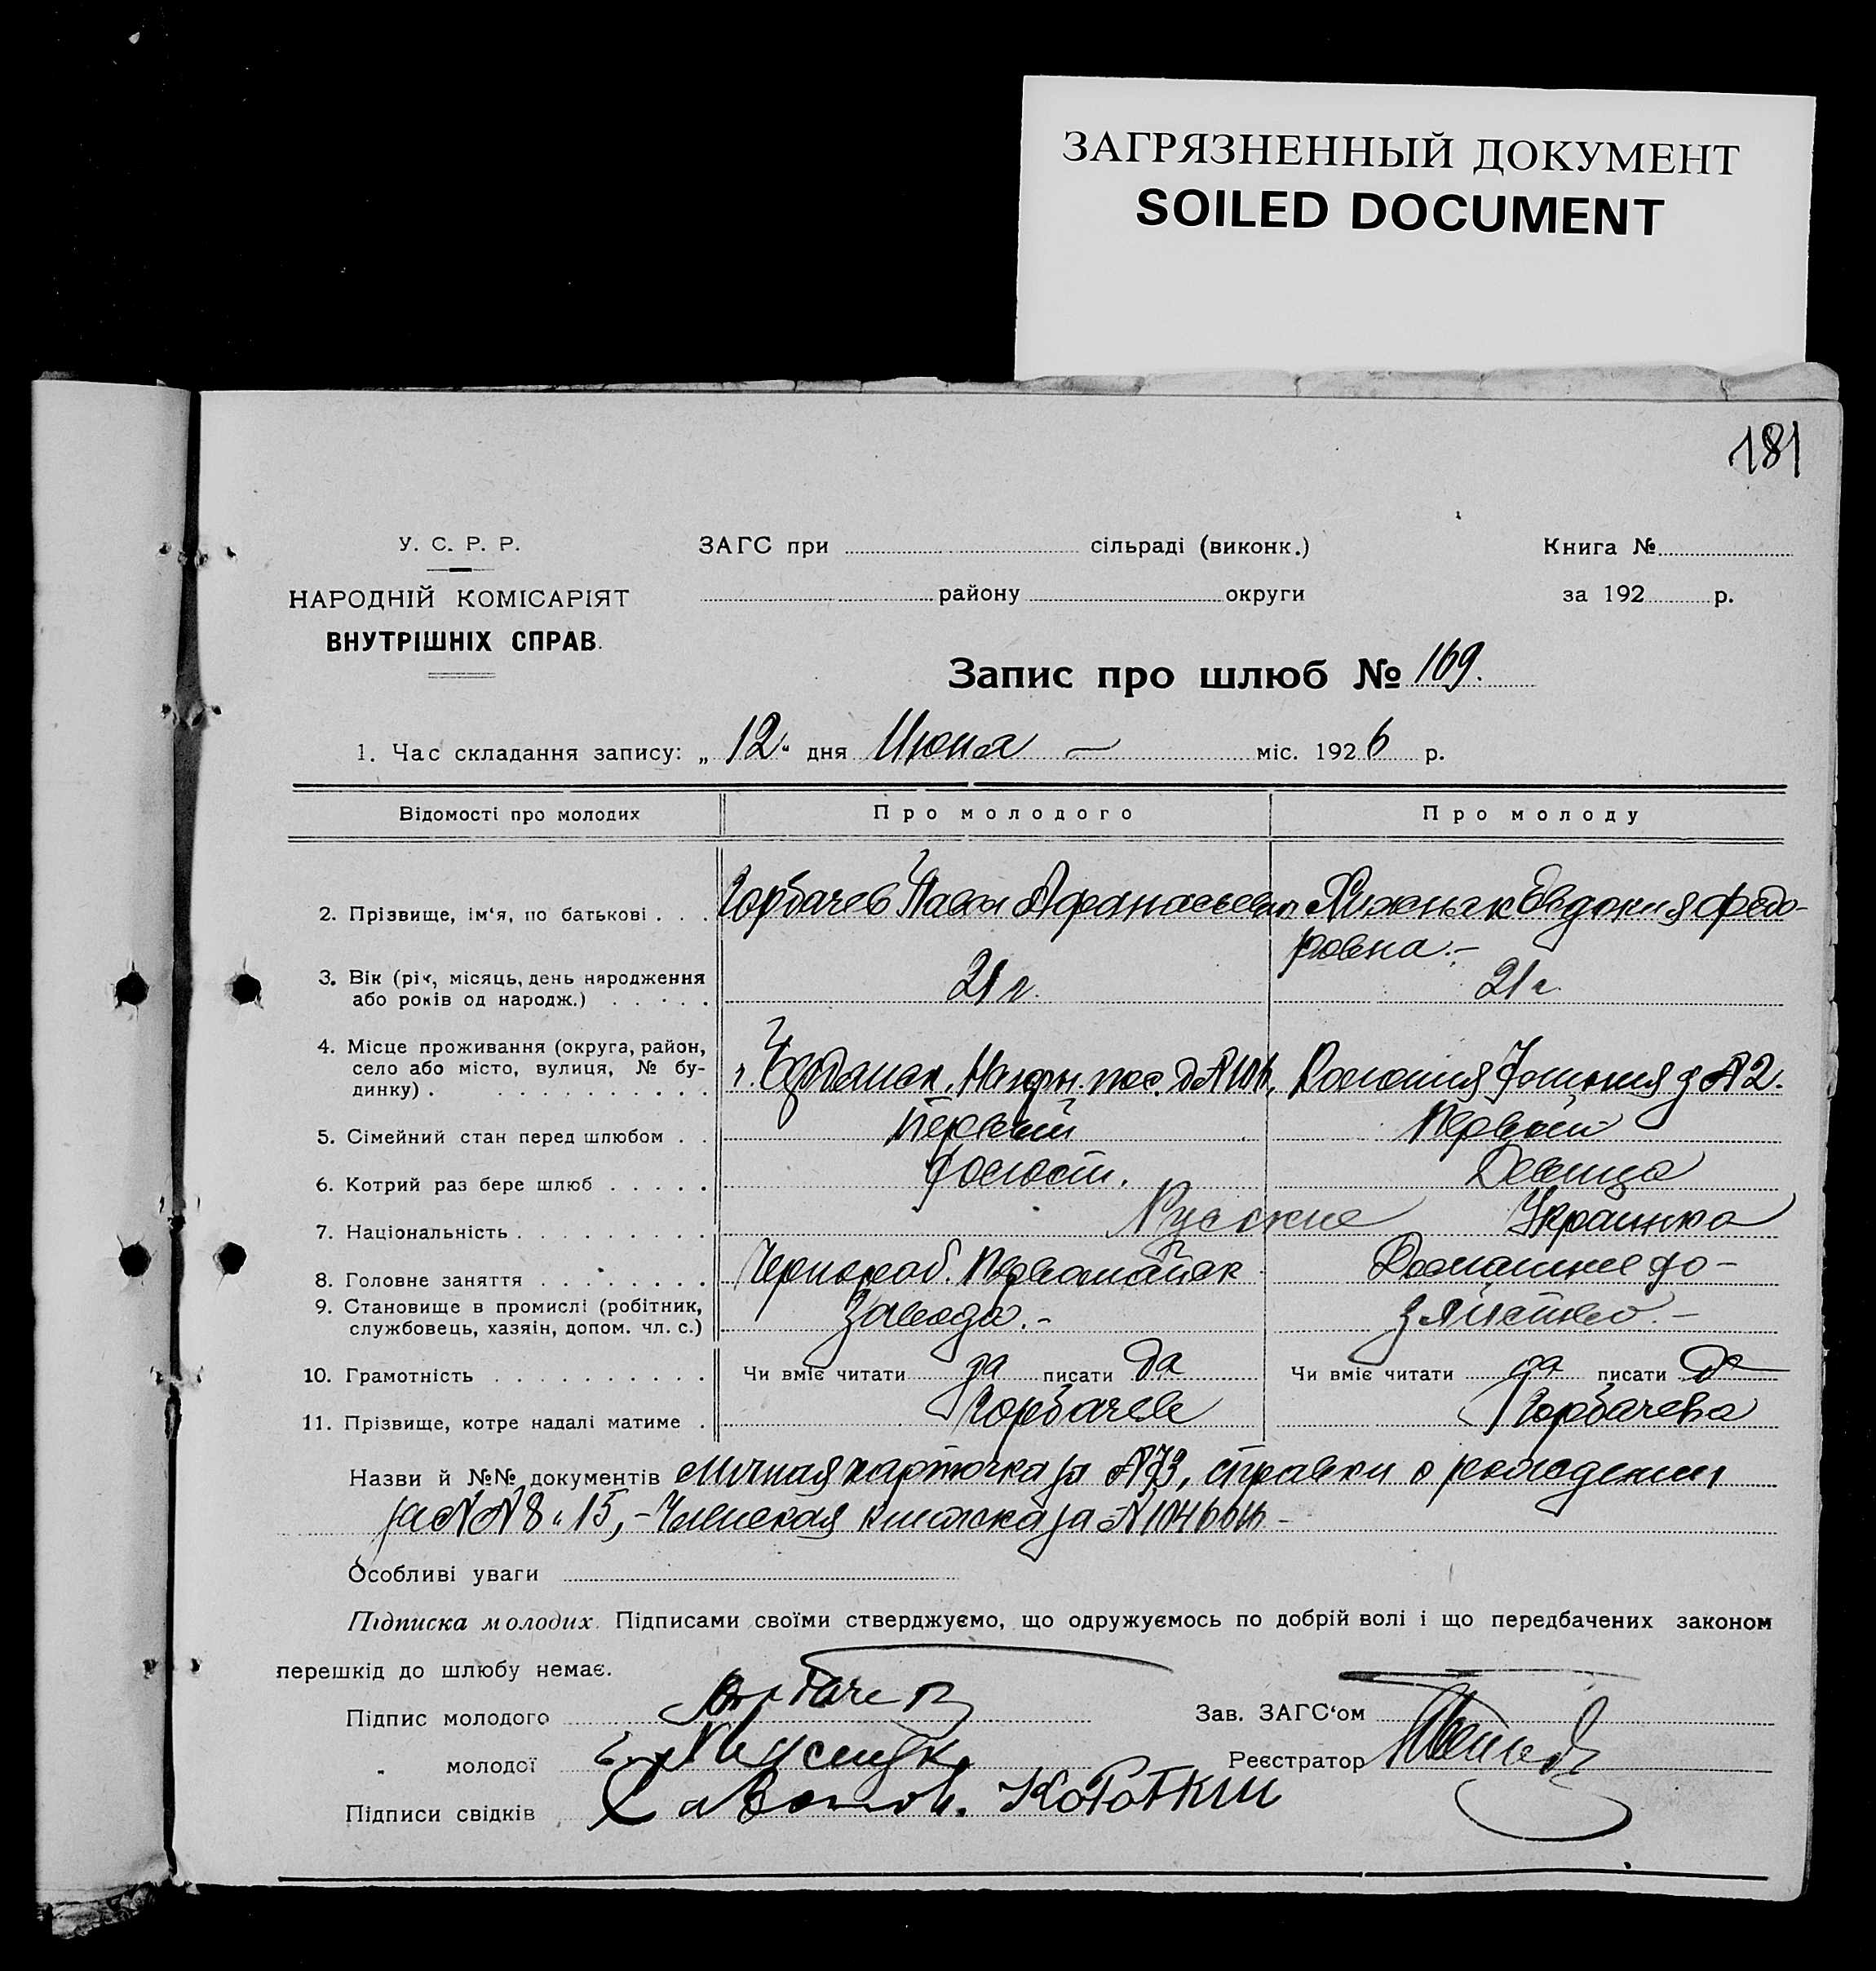 ЗАГРЯЗНЕННЫЙ ДОКУМЕНТ
SOILED DOCUMENT
181
У. С. Р. Р.
НАРОДНІЙ КОМІСАРІЯТ
ВНУТРІШНІХ СПРАВ.
ЗАГС при сільраді (виконк.)
району округи
Книга №
за 192 р.
Запис про шлюб № 169.
1. Час складання запису: „ 12 “ дня Июня — міс. 1926 р.
Відомості про молодих Про молодого Про молоду
2. Прізвище, ім‘я, по батькові . . . Горбачев Павел Афанасьевич Хижняк Евдокия Федо-
ровна.-
3. Вік (рік, місяць, день народження
або років од народж.) . . . . . 21 г. 21 г.
4. Місце проживання (округа, район,
село або місто, вулиця, № бу-
динку) . . . . . . . . . . . г. Бердянск, Нагорн. пос. д № Колония д № 2.
5. Сімейний стан перед шлюбом . . Первый Первый
6. Котрий раз бере шлюб . . . . . Холост. Девица
7. Національність . . . . . . . . . Русские Украинка
8. Головне заняття . . . . . . . . Чернораб. Первомайск Домашнее хо-
9. Становище в промислі (робітник,
службовець, хазяін, допом. чл. с.) Завода.- зяйство.-
10. Грамотність . . . . . . . . . . Чи вміє читати да писати да Чи вміє читати да писати да
11. Прізвище, котре надалі матиме . Горбачев Горбачева
Назви й №№ документів Личная карточка за № 73, справки о рождении
за № № 8 и 15, - Членская книжка за №
Особливі уваги
Підписка молодих. Підписами своїми стверджуємо, що одружуємось по добрій волі і що передбачених законом
перешкід до шлюбу немає.
Підпис молодого Горбачев
„ молодої
Підписи свідків Короткий
Зав. ЗАГС‘ом
Реєстратор